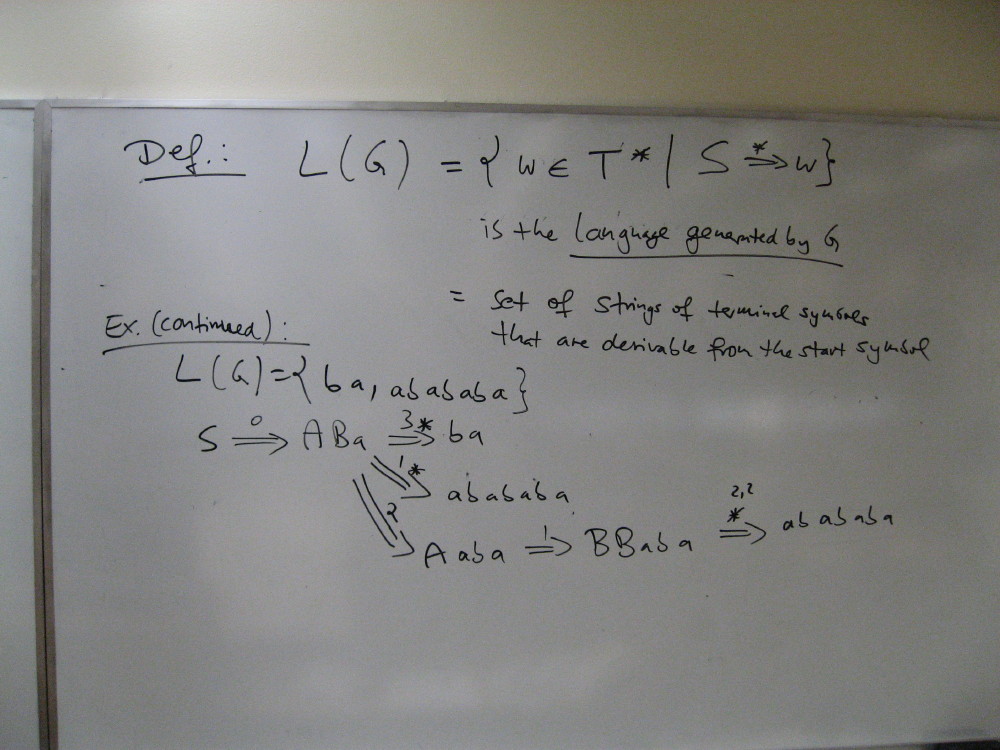 Def.: L(G) = { w ∈ T* | S *⇒ w}
is the language generated by G
= set of strings of terminal symbols
that are derivable from the start symbol
Ex. (continued):
L(G)={ba, abababa}
S 0⇒ ABa 3*⇒ ba
1*⇒ abababa
2⇒ Aaba 1⇒ BBaba 2,2 *⇒ abababa